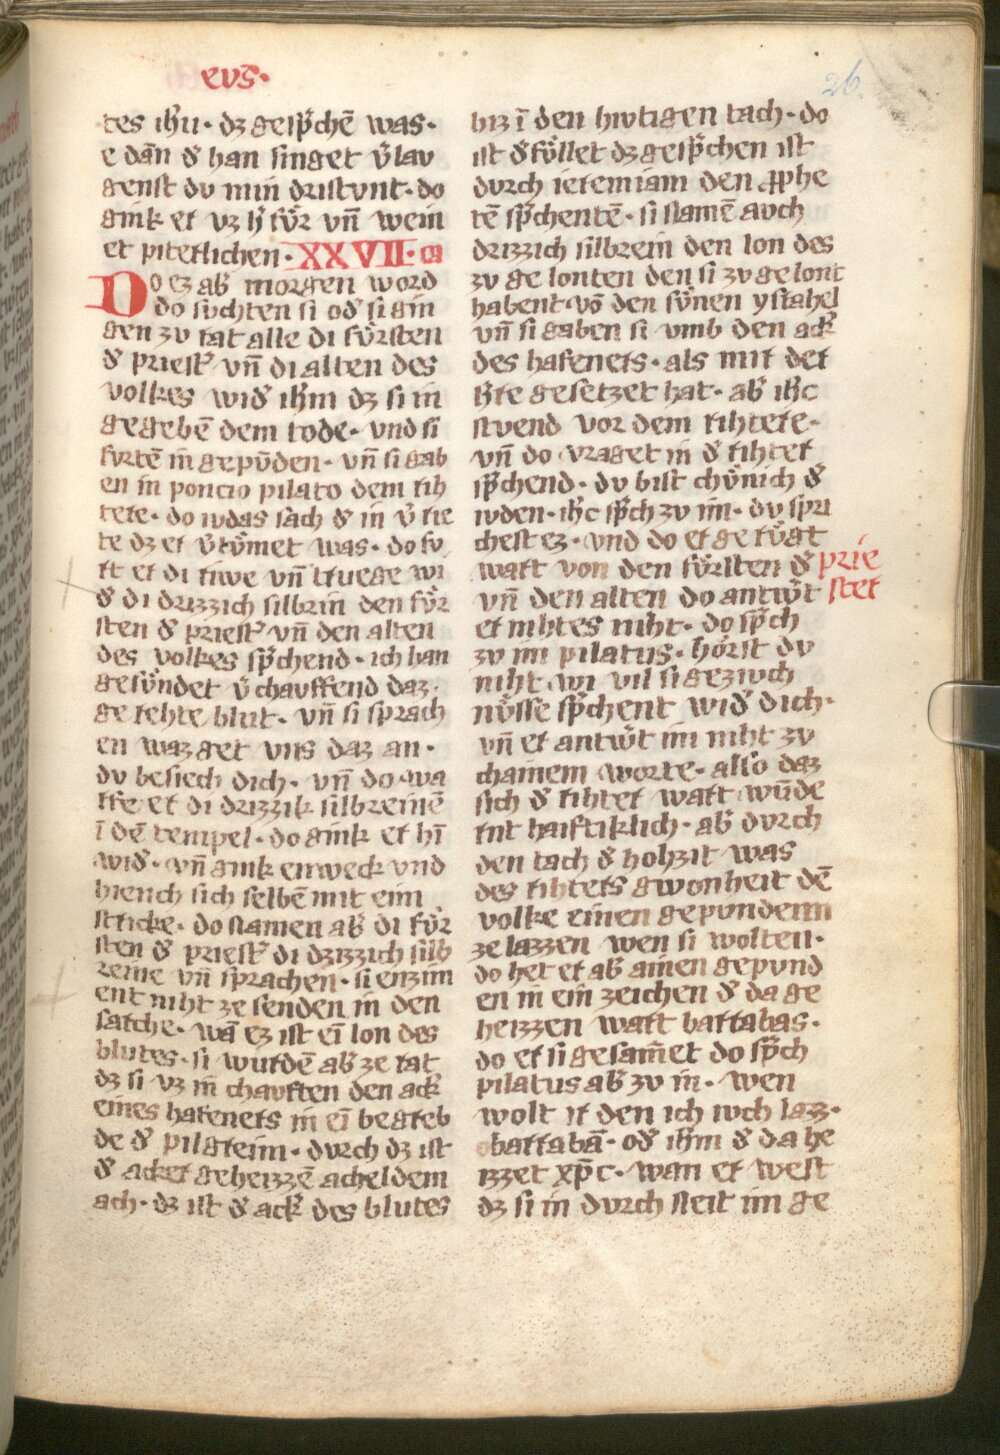 evḡ·
26.
tes ih̄u· dz gesp̄chē was·
e dān d̄ han singet v̄lav
genst dv min dristvnt· do
gink er vz h̄fv̊r vn̄ wein
et piterlichen· XXVII· ca
Do ez ab̄ morgen word
do svchten si od̄ si gin
gen zv rat alle di fv̊rsten
d̄ priest̄ vn̄ di alten des
volkes wid̄ ih̄m dz si in
gegebē dem tode· vnd si
fvrtē in gepv̄den· vn̄ si gab
en in poncio pilato dem rih
tere· do ivdas sach d̄ in v̄rie
te dz er v̄tv̊met was· do fv
rt er di riwe vn̄ trvege wi
d̄ di drizzich silbrin den fv̊r
sten d̄ priest̄ vn̄ den alten
des volkes sp̄chend· ich han
gesv̊ndet v̄chauffend daz
gerehte blut· vn̄ si sprach
en waz get vns daz an·
dv besiech dich· vn̄ do wa
rfe er di drizzik silbreinē
ī dē tempel· do gink er hī
wid̄· vn̄ gink enweck vnd
hiench sich selbē mit eim
stricke· do namen ab̄ di fv̊r
sten d̄ priest̄ di drizzich silb
reine vn̄ sprachen· si enzim
ent niht ze senden in den
sarche· wā ez ist eī lon des
blutes· si wurdē ab̄ ze rat
dz si vz in chavften den ack̄
eines hafeners in eī begreb
de d̄ pilgreim· durch dz ist
d̄ acker geheizzē acheldem
ach· dz ist d̄ ack̄ des blutes
biz ī den hivtigen tach· do
ist d̄fv̊llet dz gesp̄chen ist
dvrch ieremiam den p̄phe
tē sp̄chentē· si namē avch
drizzich silbrein den lon des
zv ge lonten den si zv gelont
habent vō den sv̊nen ysrahel
vn̄ si gaben si vmb den ack̄
des hafeners· als mir der
h̄re gesetzet hat· ab̄ ih̄c
stvend vor dem rihtere·
vn̄ do vraget in d̄ rihter
sp̄chend· dv bist chv̊nich d̄
ivden· ih̄c sp̄ch zv im· dv spri
chest ez· vnd do er gerv̊gt
wart von den fv̊rsten d̄ prie
vn̄ den alten do antwr̄t ster
er nihtes niht· do sp̄ch
zv im pilatus· hörst dv
niht wi vil si gezivch
nv̊sse sp̄chent wid̄ dich·
vn̄ er antwr̄t im niht zv
chainem worte· also daz
sich d̄ rihter wart wūde
rnt haiftiklich· ab̄ dvrch
den tach d̄ hohzit was
des rihters gwonheit dē
volke einen gepvndenn
ze lazzen wen si wolten·
do het er ab̄ ainen gepvnd
en in ein zeichen d̄ da ge
heizzen wart barrabas·
do er si gesam̄et do sp̄ch
pilatus ab̄ zv in· wen
wolt ir den ich ivch lazz·
barrabā· od̄ ih̄m d̄ da he
izzet xp̄c· wan er west
dz si in dvrch neit im ge